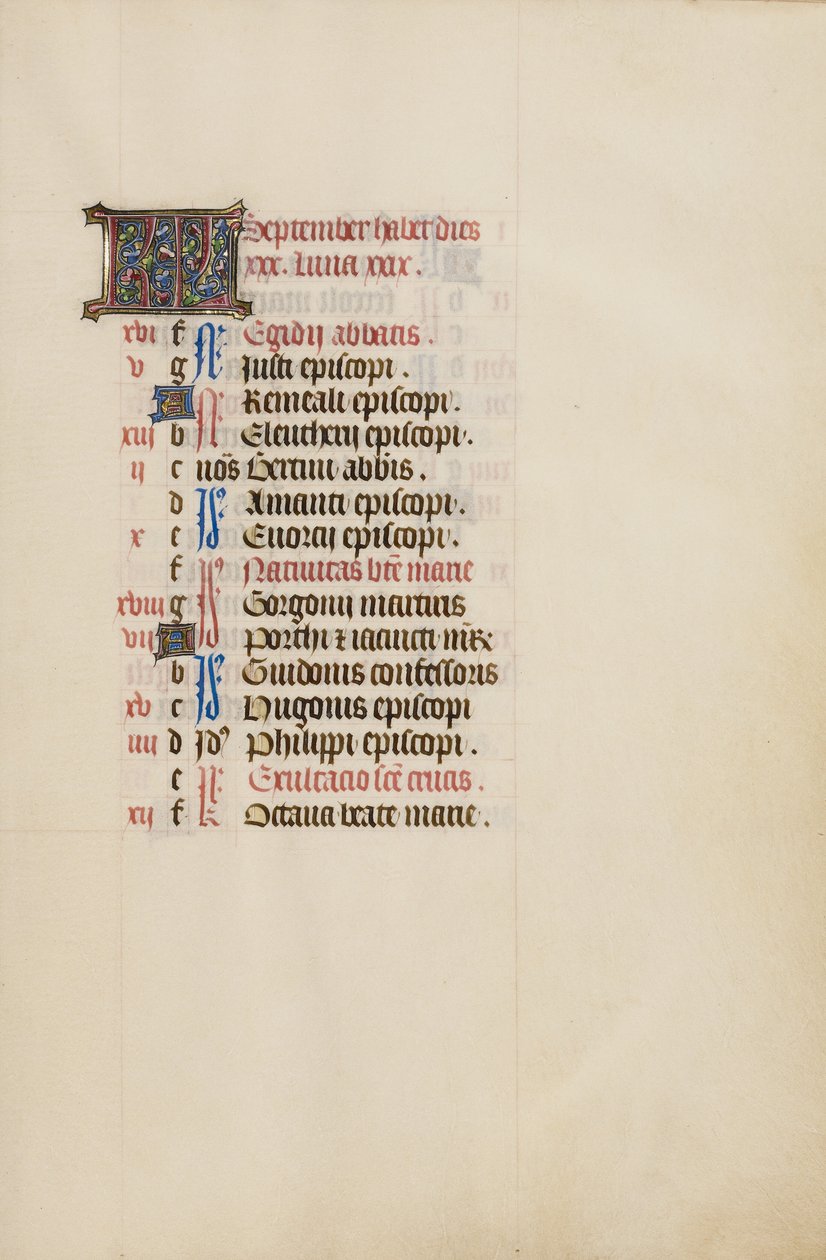 KL September habet dies
xxx. Luna xxx.
xvi f N Egidij abbatis.
v g Justi episcopi.
A N Remeali episcopi.
xiii b N Eleutherij episcopi.
ii c nōs Bertini abbīs.
d Id Amanti episcopi.
x e Euorcij episcopi.
f Id Natiuitas btē marie
xviii g Gorgonij martiris
vii A Porthi ⁊ iacincti
b Id Guidonis confessoris
xv c Hugonis episcopi
iiii d Jdꝰ Philippi episcopi.
e Exultacio scē crucis.
xii f k Octaua beate marie.